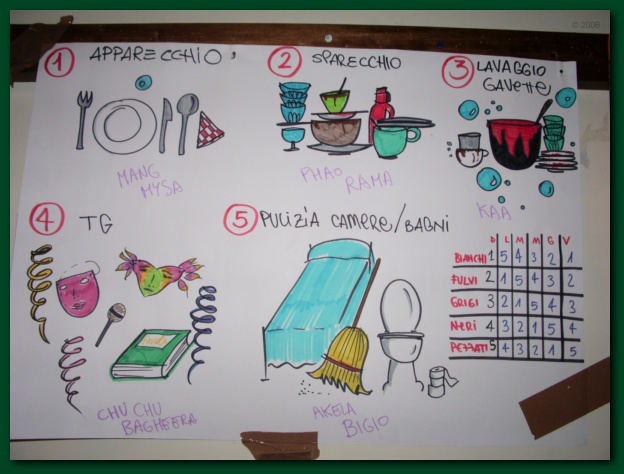 1 APPARECCHIO
MANG
MYSA
2 SPARECCHIO
PHAO
RAMA
3 LAVAGGIO
GAVETTE
KAA
4 TG
CHU CHU
BAGHEERA
5 PULIZIA CAMERE/BAGNI
AKELA
BIGIO
D L M M G V
BIANCHI 1 5 4 3 2 1
FULVI 2 1 5 4 3 2
GRIGI 3 2 1 5 4 3
NERI 4 3 2 1 5 4
PEZZATI 5 4 3 2 1 5